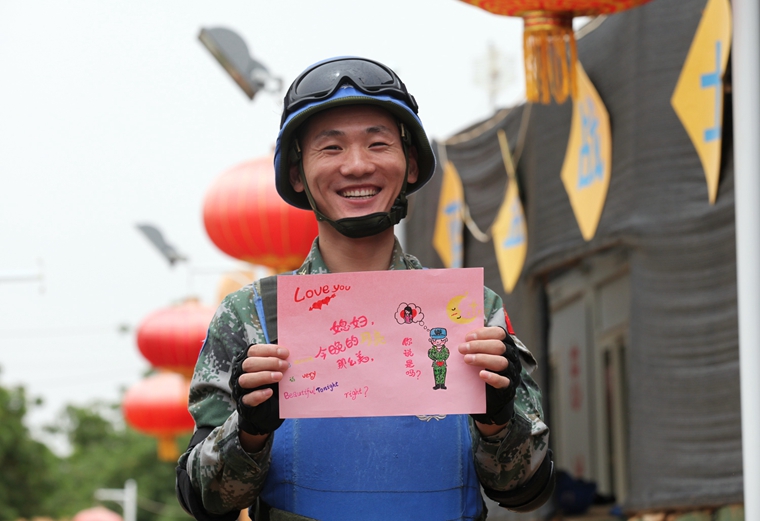 Love you
媳妇，
今晚的
那么美。
very
Beautiful Tonight right?
你说是吗?
战
士